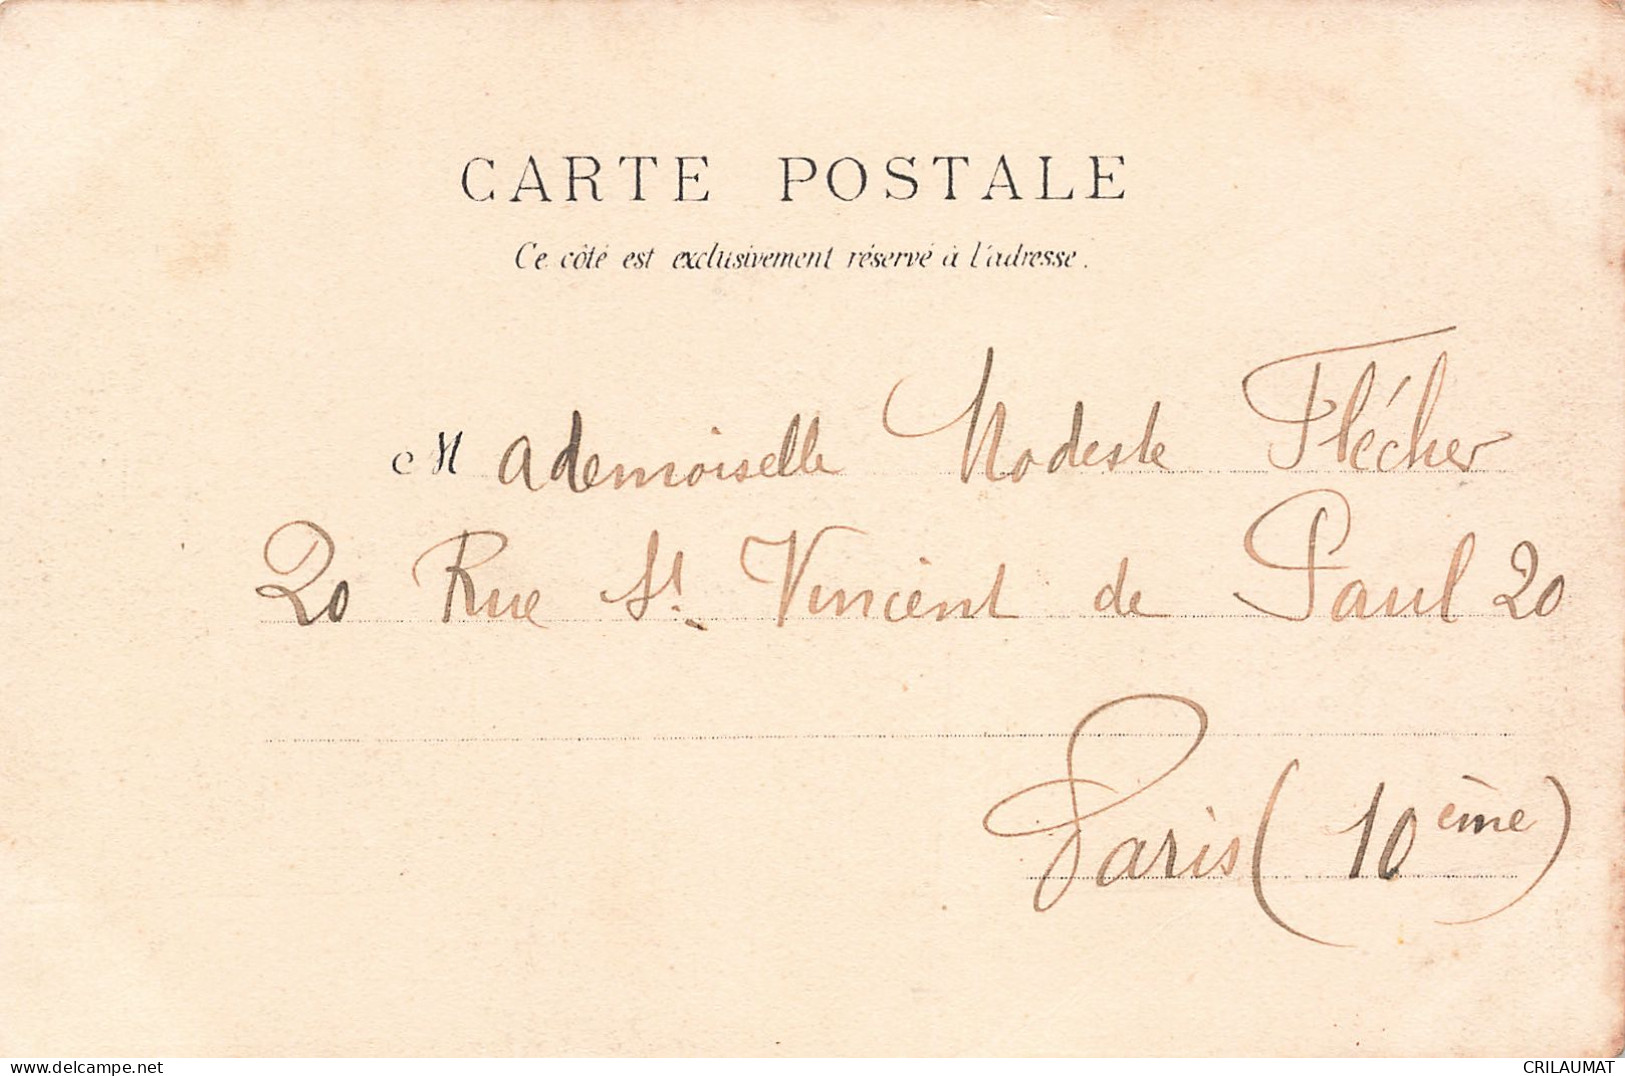 CARTE POSTALE
Ce côté est exclusivement réservé à l'adresse.
Mademoiselle Modeste Flécher
20 Rue St. Vincent de Paul 20
Paris (10ème)
delcampe.net
CRILAUMAT